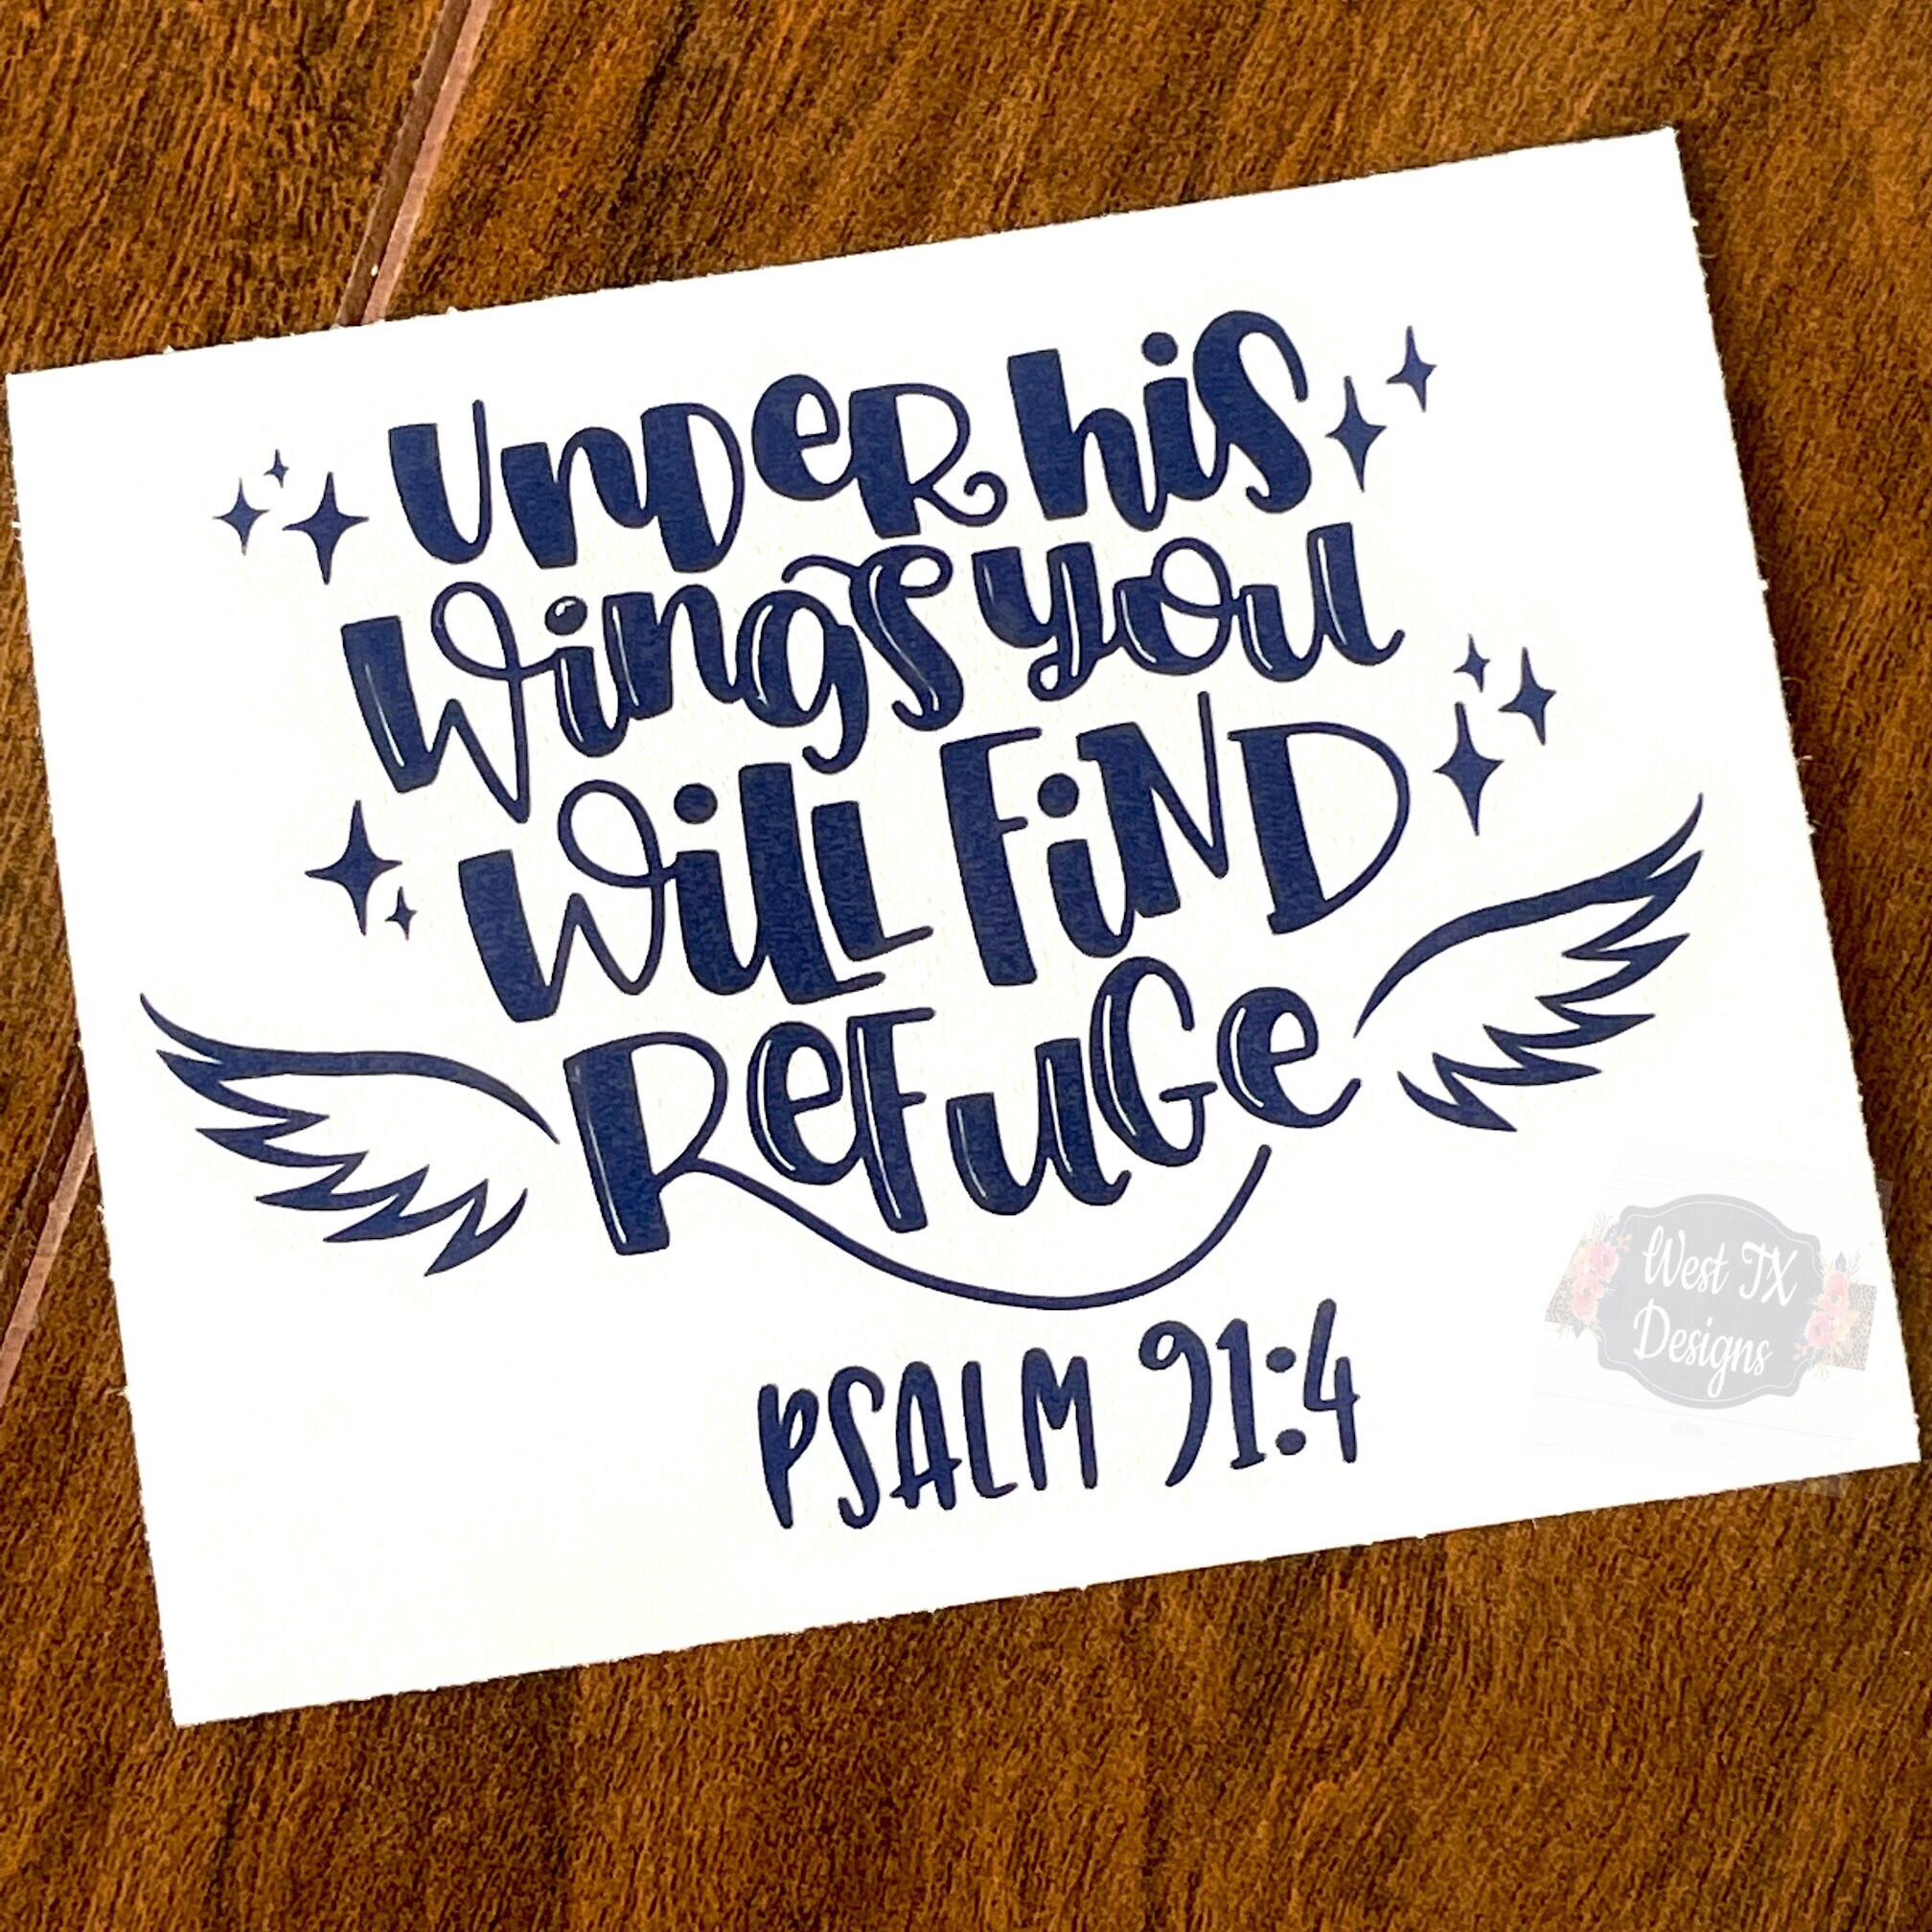 UNDER his
Wings you
Will FiND
ReFuGe
PSALM 91:4
West TX
Designs